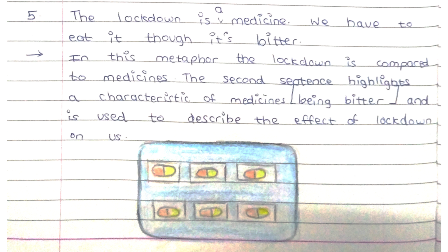 5 The lockdown is a medicine. We have to
eat it though it's bitter.
→ In this metaphor the lockdown is compared
to medicines The second sentence highlights
a characteristic of medicines [being bitter] and
is used to describe the effect of lockdown
on us.